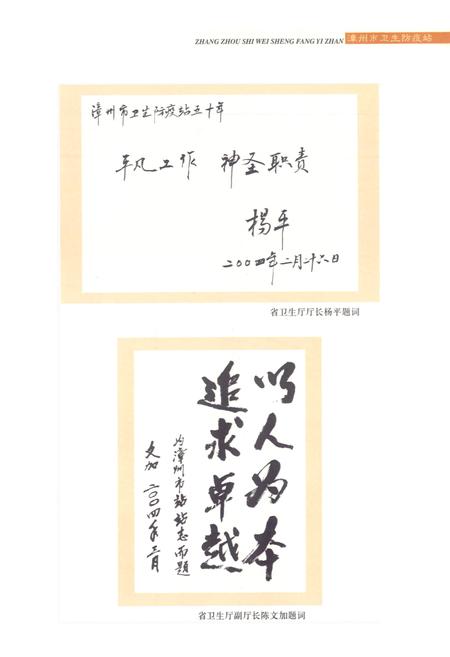 ZHANG ZHOU SHI WEI SHENG FANG YI ZHAN 漳州市卫生防疫站
漳州市卫生防疫站五十年
平凡工作 神圣职责
杨平
二00四年二月二十六日
省卫生厅厅长杨平题词
以人为本
追求卓越
为漳州市站站志而题
文加 二〇〇四年三月
省卫生厅副厅长陈文加题词